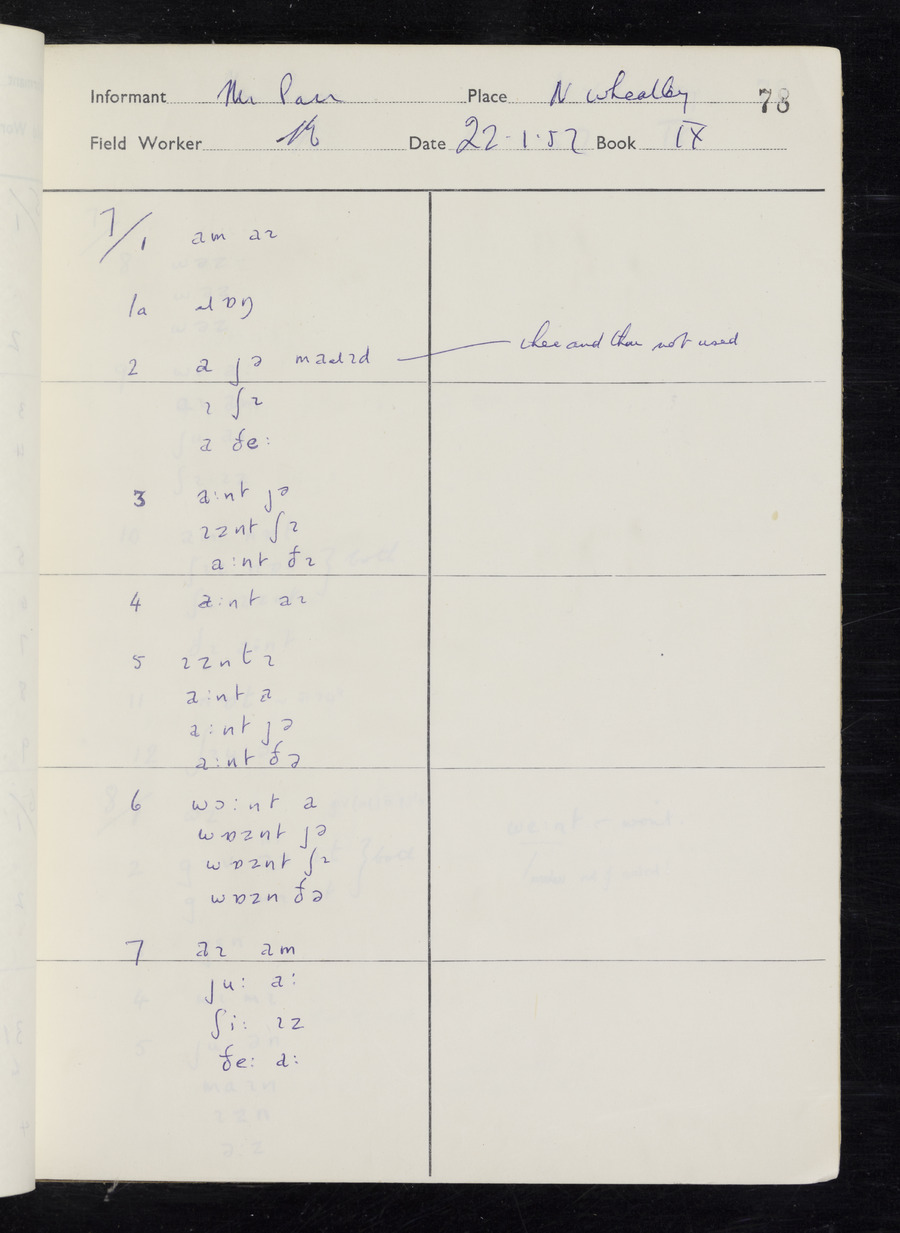 Informant Mr Parr Place N Wheatley 78
Field Worker Date 22.1.57 Book IX
7/1 am aɪ
1a
2 a jə maɹɪd thee and thou not used
ɪ ʃɪ
a ðe:
3 a:nt jə
ɪznt ʃɪ
a:nt ðɪ
4 a:nt aɪ
5 ɪznt ɪ
a:nt a
a:nt jə
a:nt ðə
6 wɔ:nt a
wɒznt jə
wɒznt ʃɪ
wɒzn ðə
7 aɪ am
ju: a:
ʃi: ɪz
ðe: a: